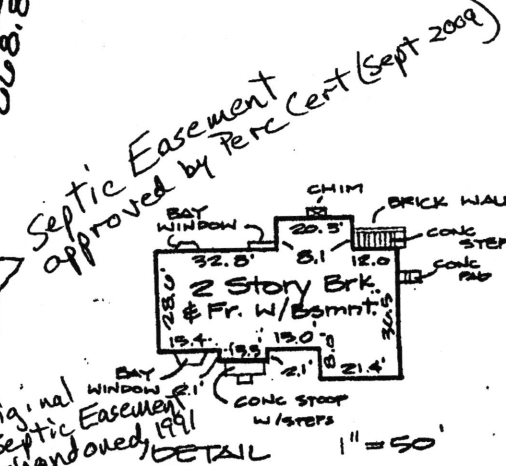 Septic Easement
approved by Perc Cert (Sept 2009)
CHIM
BRICK WALL
BAY
WINDOW
20.3'
CONC
STEP
32.8'
8.1
12.0
CONC
PAD
2 Story Brk.
& Fr. W/Bsmnt.
28.6'
36.5'
15.4
13.5'
13.0
8.0
2.1'
21.4'
BAY
WINDOW
2.1'
CONC STOOP
W/STEPS
Septic Easement
1991
DETAIL 1"=50'